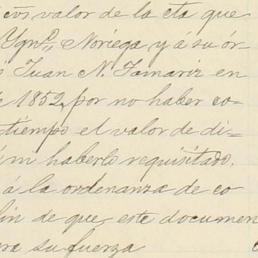 cos, valor de la cta que
Ygn.º Noriega y á su ór
Juan N. Tamariz en
1852, por no haber co-
tiempo el valor de di-
haberlo requisitado,
á la ordenanza de co-
fin de que este documen
su fuerza